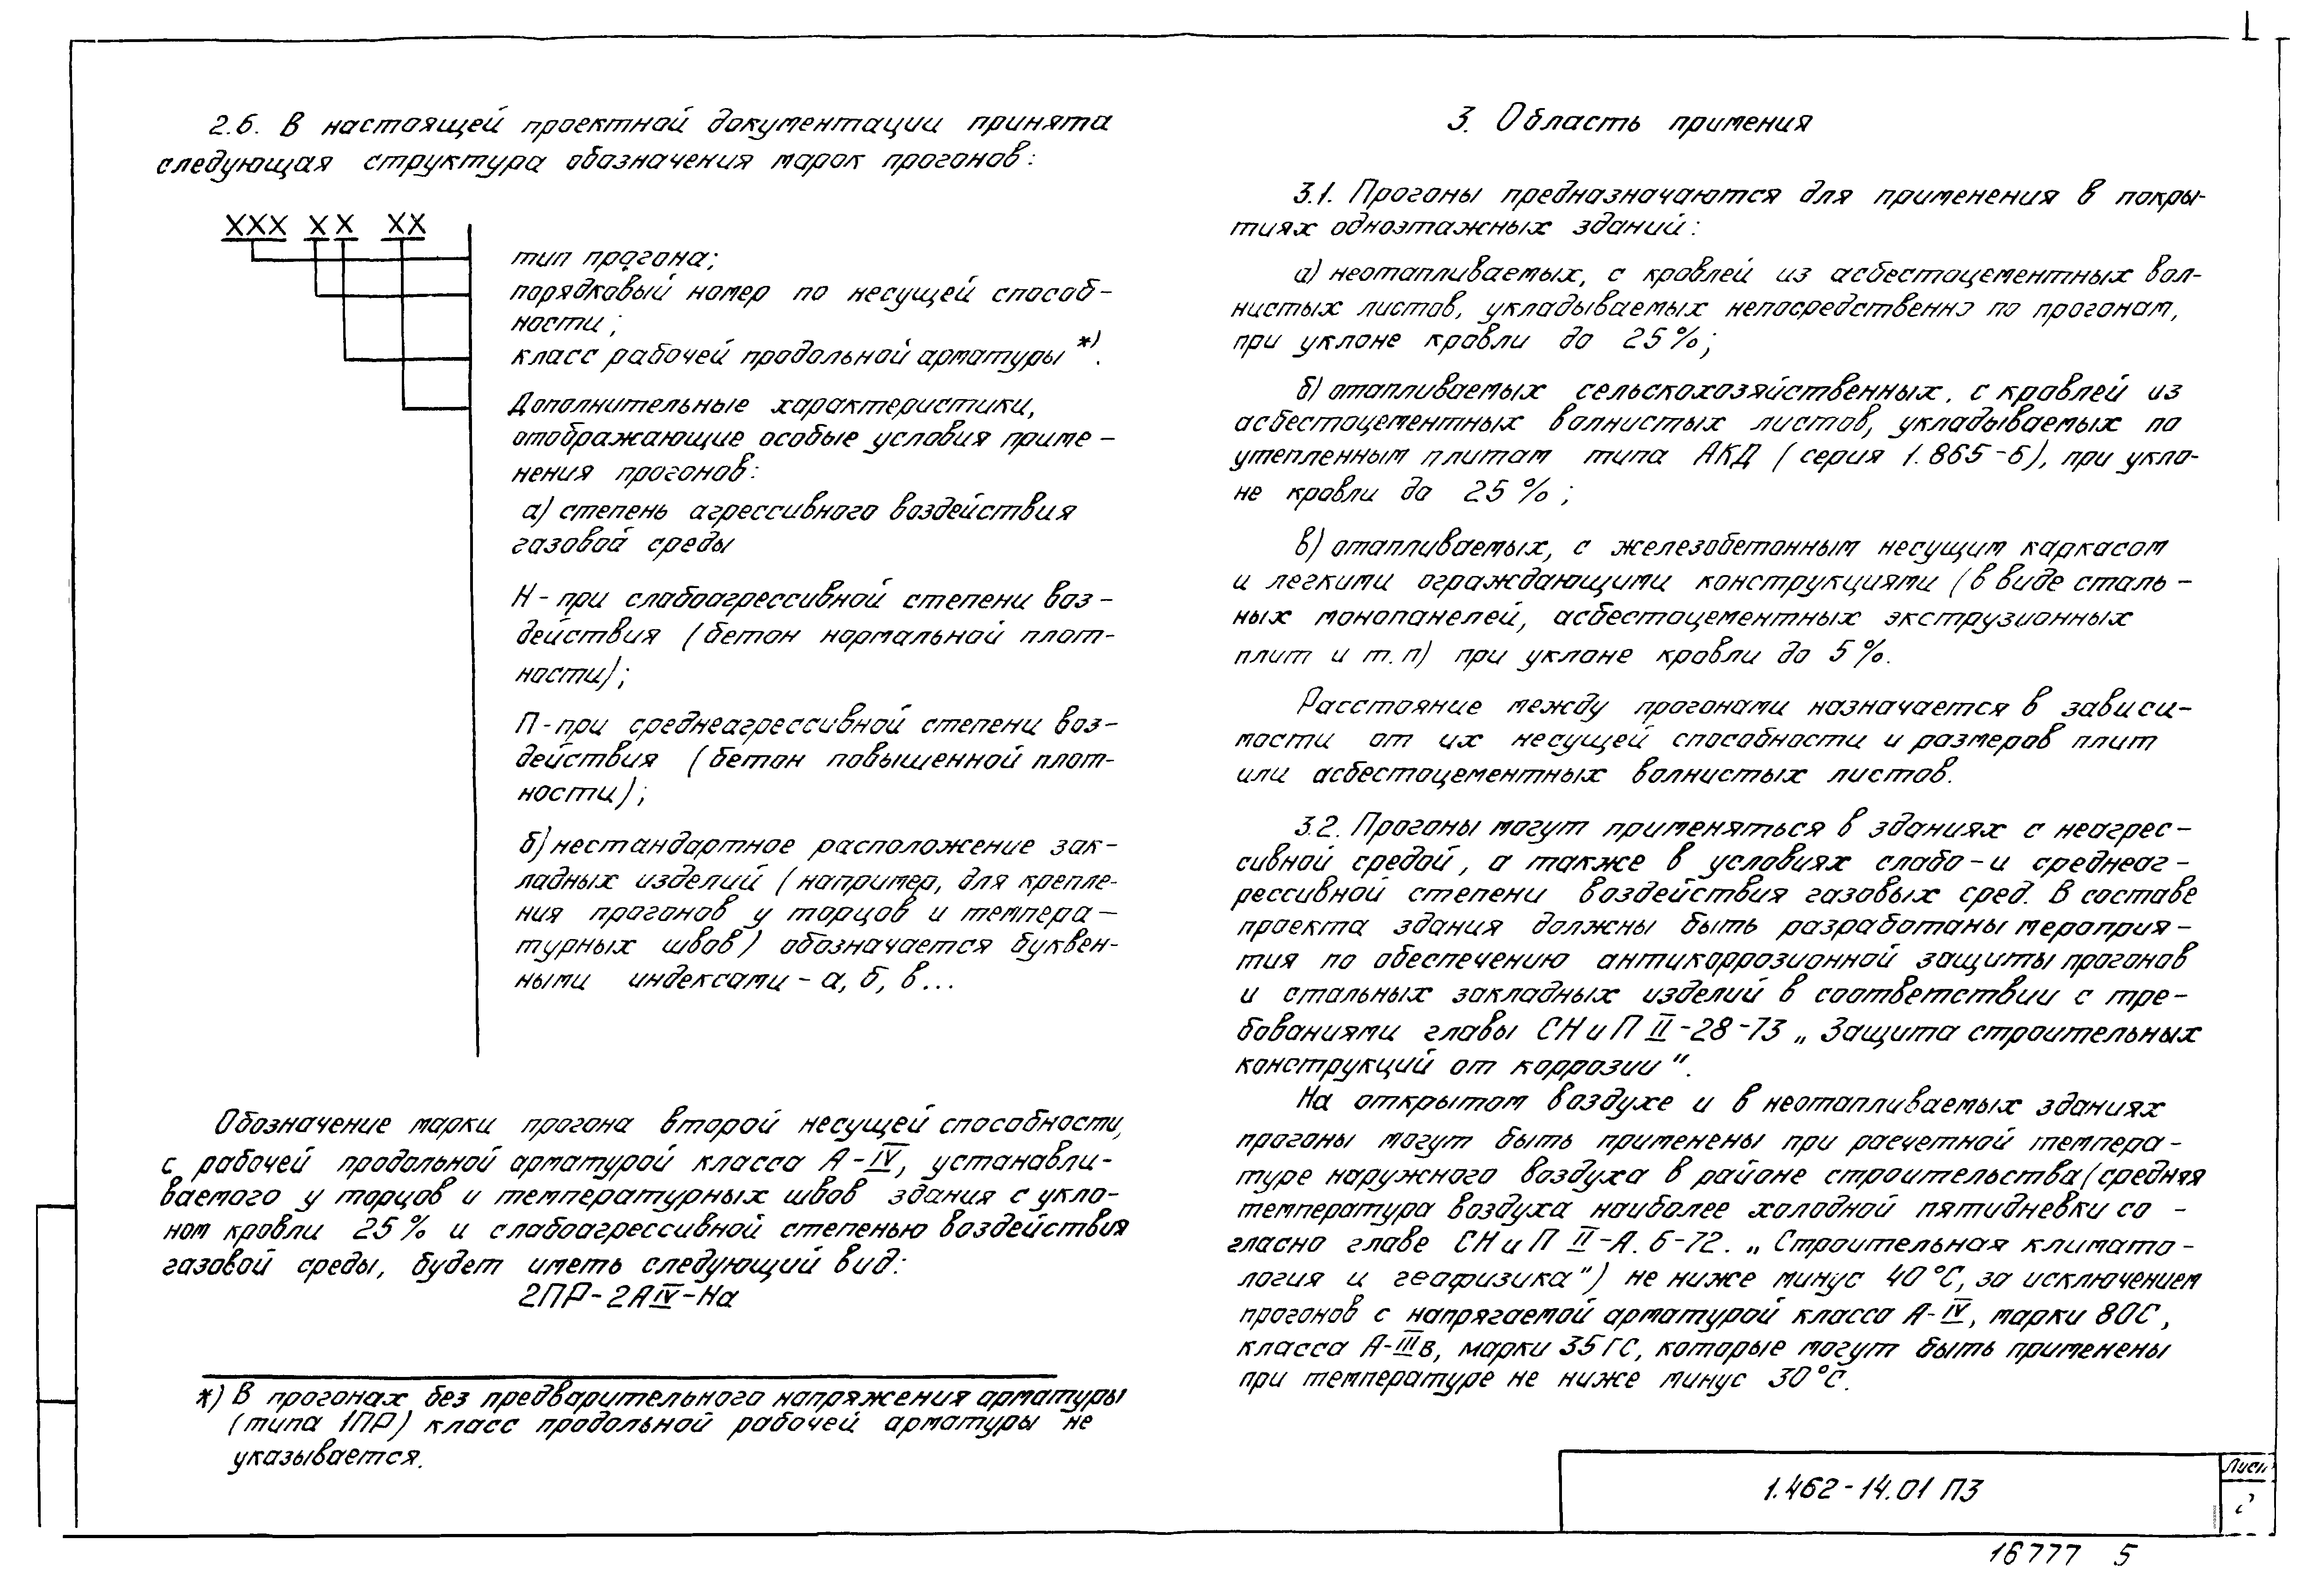 2.6. В настоящей проектной документации принята
следующая структура обозначения марок прогонов:
ХХХ Х Х ХХ
тип прогона;
порядковый номер по несущей способ-
ности;
класс рабочей продольной арматуры *).
Дополнительные характеристики,
отображающие особые условия приме-
нения прогонов:
а) степень агрессивного воздействия
газовой среды
Н - при слабоагрессивной степени воз-
действия (бетон нормальной плот-
ности);
П - при среднеагрессивной степени воз-
действия (бетон повышенной плот-
ности);
б) нестандартное расположение зак-
ладных изделий (например, для крепле-
ния прогонов у торцов и темпера-
турных швов) обозначается буквен-
ными индексами - а, б, в...
Обозначение марки прогона второй несущей способности,
с рабочей продольной арматурой класса А-IV, устанавли-
ваемого у торцов и температурных швов здания с укло-
ном кровли 25% и слабоагрессивной степенью воздействия
газовой среды, будет иметь следующий вид:
2ПР-2АIV-На
*) В прогонах без предварительного напряжения арматуры
(типа 1ПР) класс продольной рабочей арматуры не
указывается.
3. Область примения
3.1. Прогоны предназначаются для применения в покры-
тиях одноэтажных зданий:
а) неотапливаемых, с кровлей из асбестоцементных вол-
нистых листов, укладываемых непосредственно по прогонам,
при уклоне кровли до 25%;
б) отапливаемых сельскохозяйственных, с кровлей из
асбестоцементных волнистых листов, укладываемых по
утепленным плитам типа АКД (серия 1.865-6), при укло-
не кровли до 25%;
в) отапливаемых, с железобетонным несущим каркасом
и легкими ограждающими конструкциями (в виде сталь-
ных монопанелей, асбестоцементных экструзионных
плит и т.п) при уклоне кровли до 5%.
Расстояние между прогонами назначается в зависи-
мости от их несущей способности и размеров плит
или асбестоцементных волнистых листов.
3.2. Прогоны могут применяться в зданиях с неагрес-
сивной средой, а также в условиях слабо- и среднеаг-
рессивной степени воздействия газовых сред. В составе
проекта здания должны быть разработаны мероприя-
тия по обеспечению антикоррозионной защиты прогонов
и стальных закладных изделий в соответствии с тре-
бованиями главы СНиП II-28-73 „Защита строительных
конструкций от коррозии".
На открытом воздухе и в неотапливаемых зданиях
прогоны могут быть применены при расчетной темпера-
туре наружного воздуха в районе строительства (средняя
температура воздуха наиболее холодной пятидневки со-
гласно главе СНиП II-А. 6-72. „Строительная климато-
логия и геофизика") не ниже минус 40°С, за исключением
прогонов с напрягаемой арматурой класса А-IV, марки 80С,
класса А-IIIв, марки 35ГС, которые могут быть применены
при температуре не ниже минус 30°С.
1.462-14.01 ПЗ
Лист
16777 5